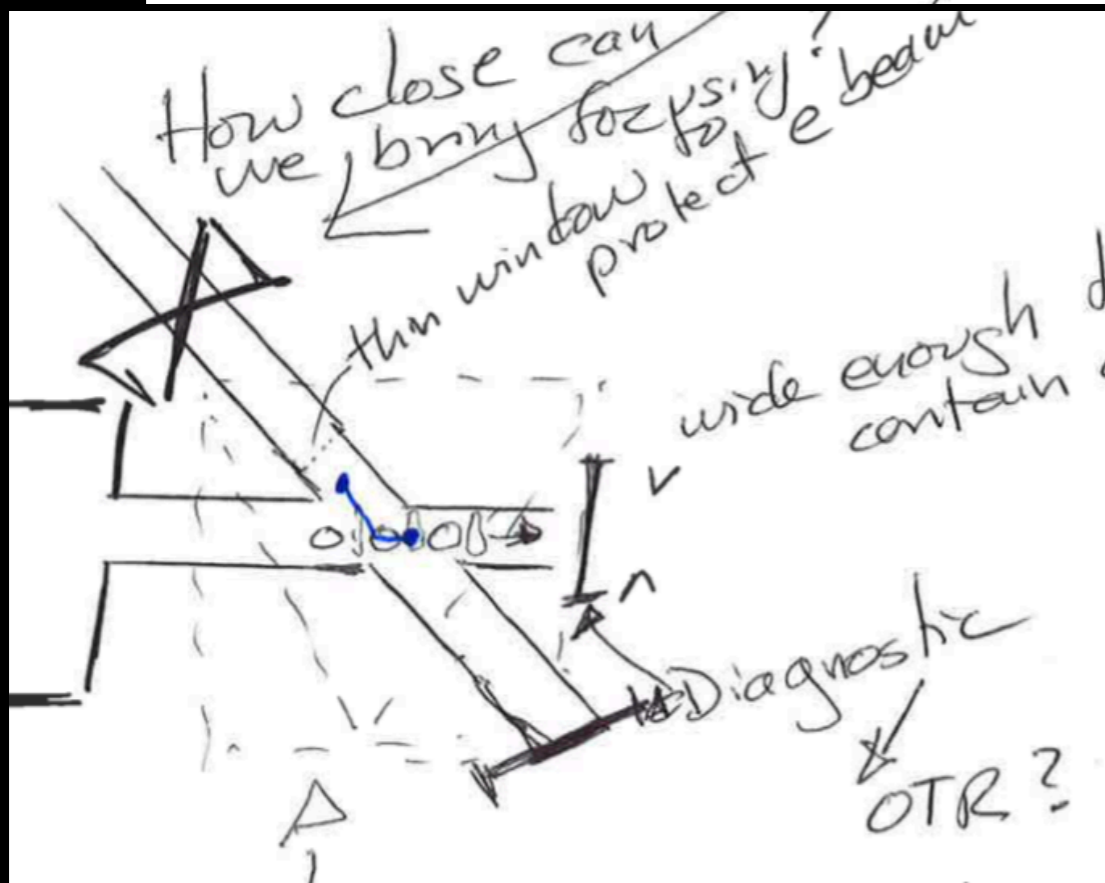 How close can
we bring focusing?
thin window to
protect e beam
wide enough
contain
Diagnostic
OTR?